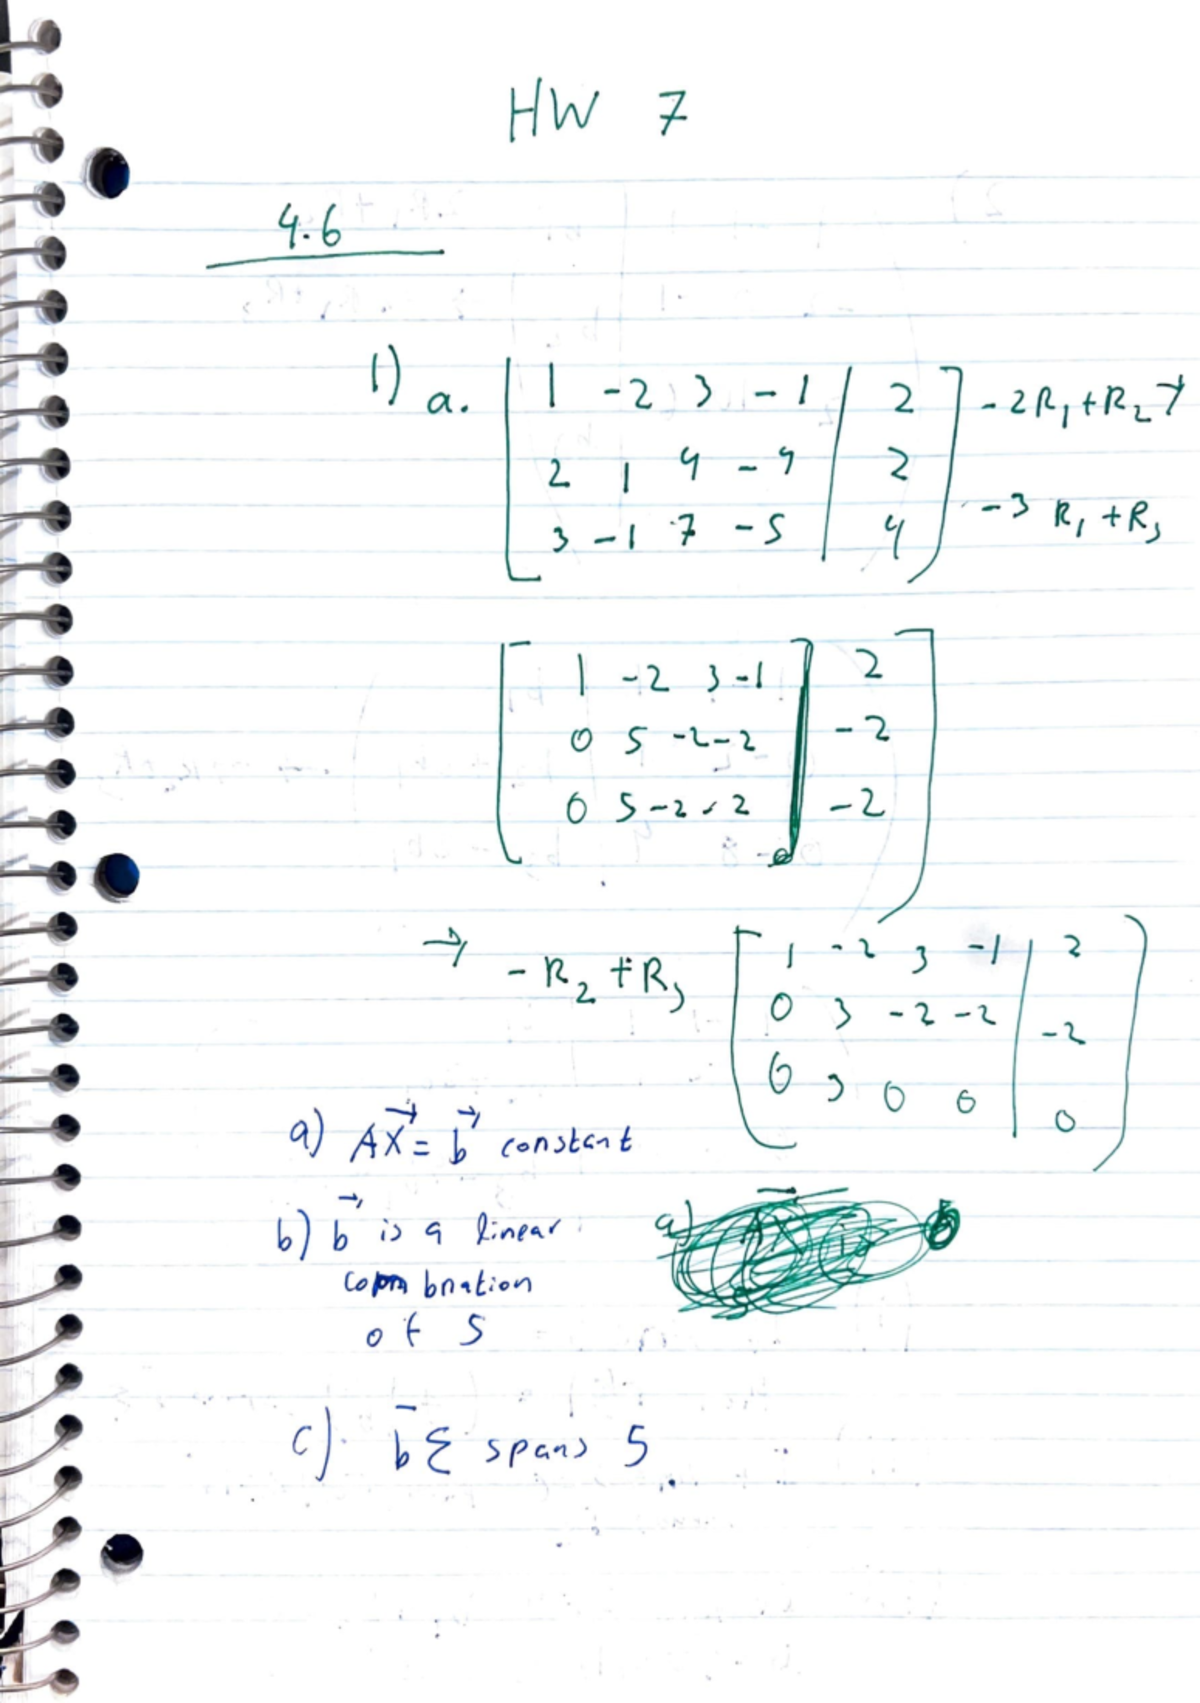 HW 7
4.6
1) a. [ 1 -2 3 -1 | 2 ] -2R₁+R₂ →
2 1 4 -4 | 2
3 -1 7 -5 | 4 ] -3 R₁ +R₃
[ 1 -2 3 -1 | 2
0 5 -2 -2 | -2
0 5 -2 -2 | -2 ]
→ -R₂ +R₃ [ 1 -2 3 -1 | 2
0 3 -2 -2 | -2
0 3 0 0 | 0 ]
a) AX⃗ = b⃗ constant
b) b⃗ is a linear
combnation
of S
c). b̄ Σ spans S